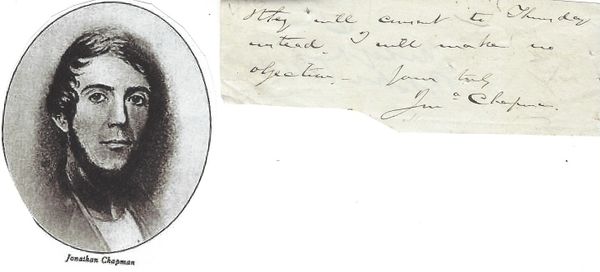 they will consent to Thursday
instead. I will make no
objection. — Yours truly
Jnᵃ Chapman.
Jonathan Chapman